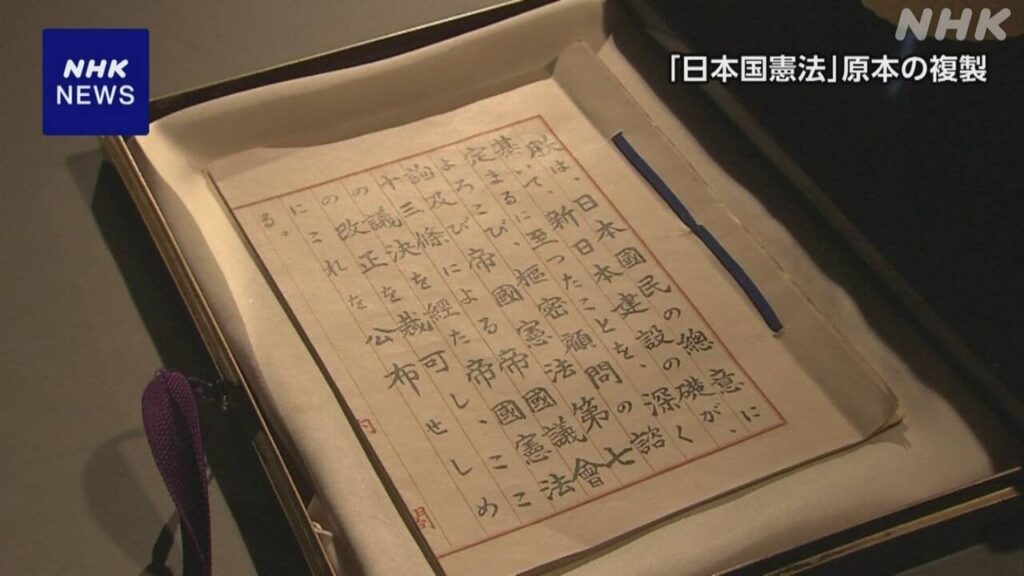 NHK
NHK
NEWS
「日本国憲法」原本の複製
朕は、日本國民の總意に
基いて、新日本建設の礎が、
定まるに至つたことを、深く
よろこび、樞密顧問の諮
詢及び帝國憲法第七
十三條による帝國議會
の議決を經た帝國憲法
の改正を裁可し、ここ
にこれを公布せしめ
る。
内閣